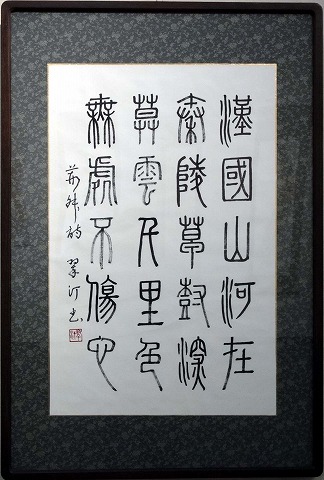 漢國山河在
秦陵草樹深
暮雲千里色
無處不傷心
荊叔詩 翠汀書